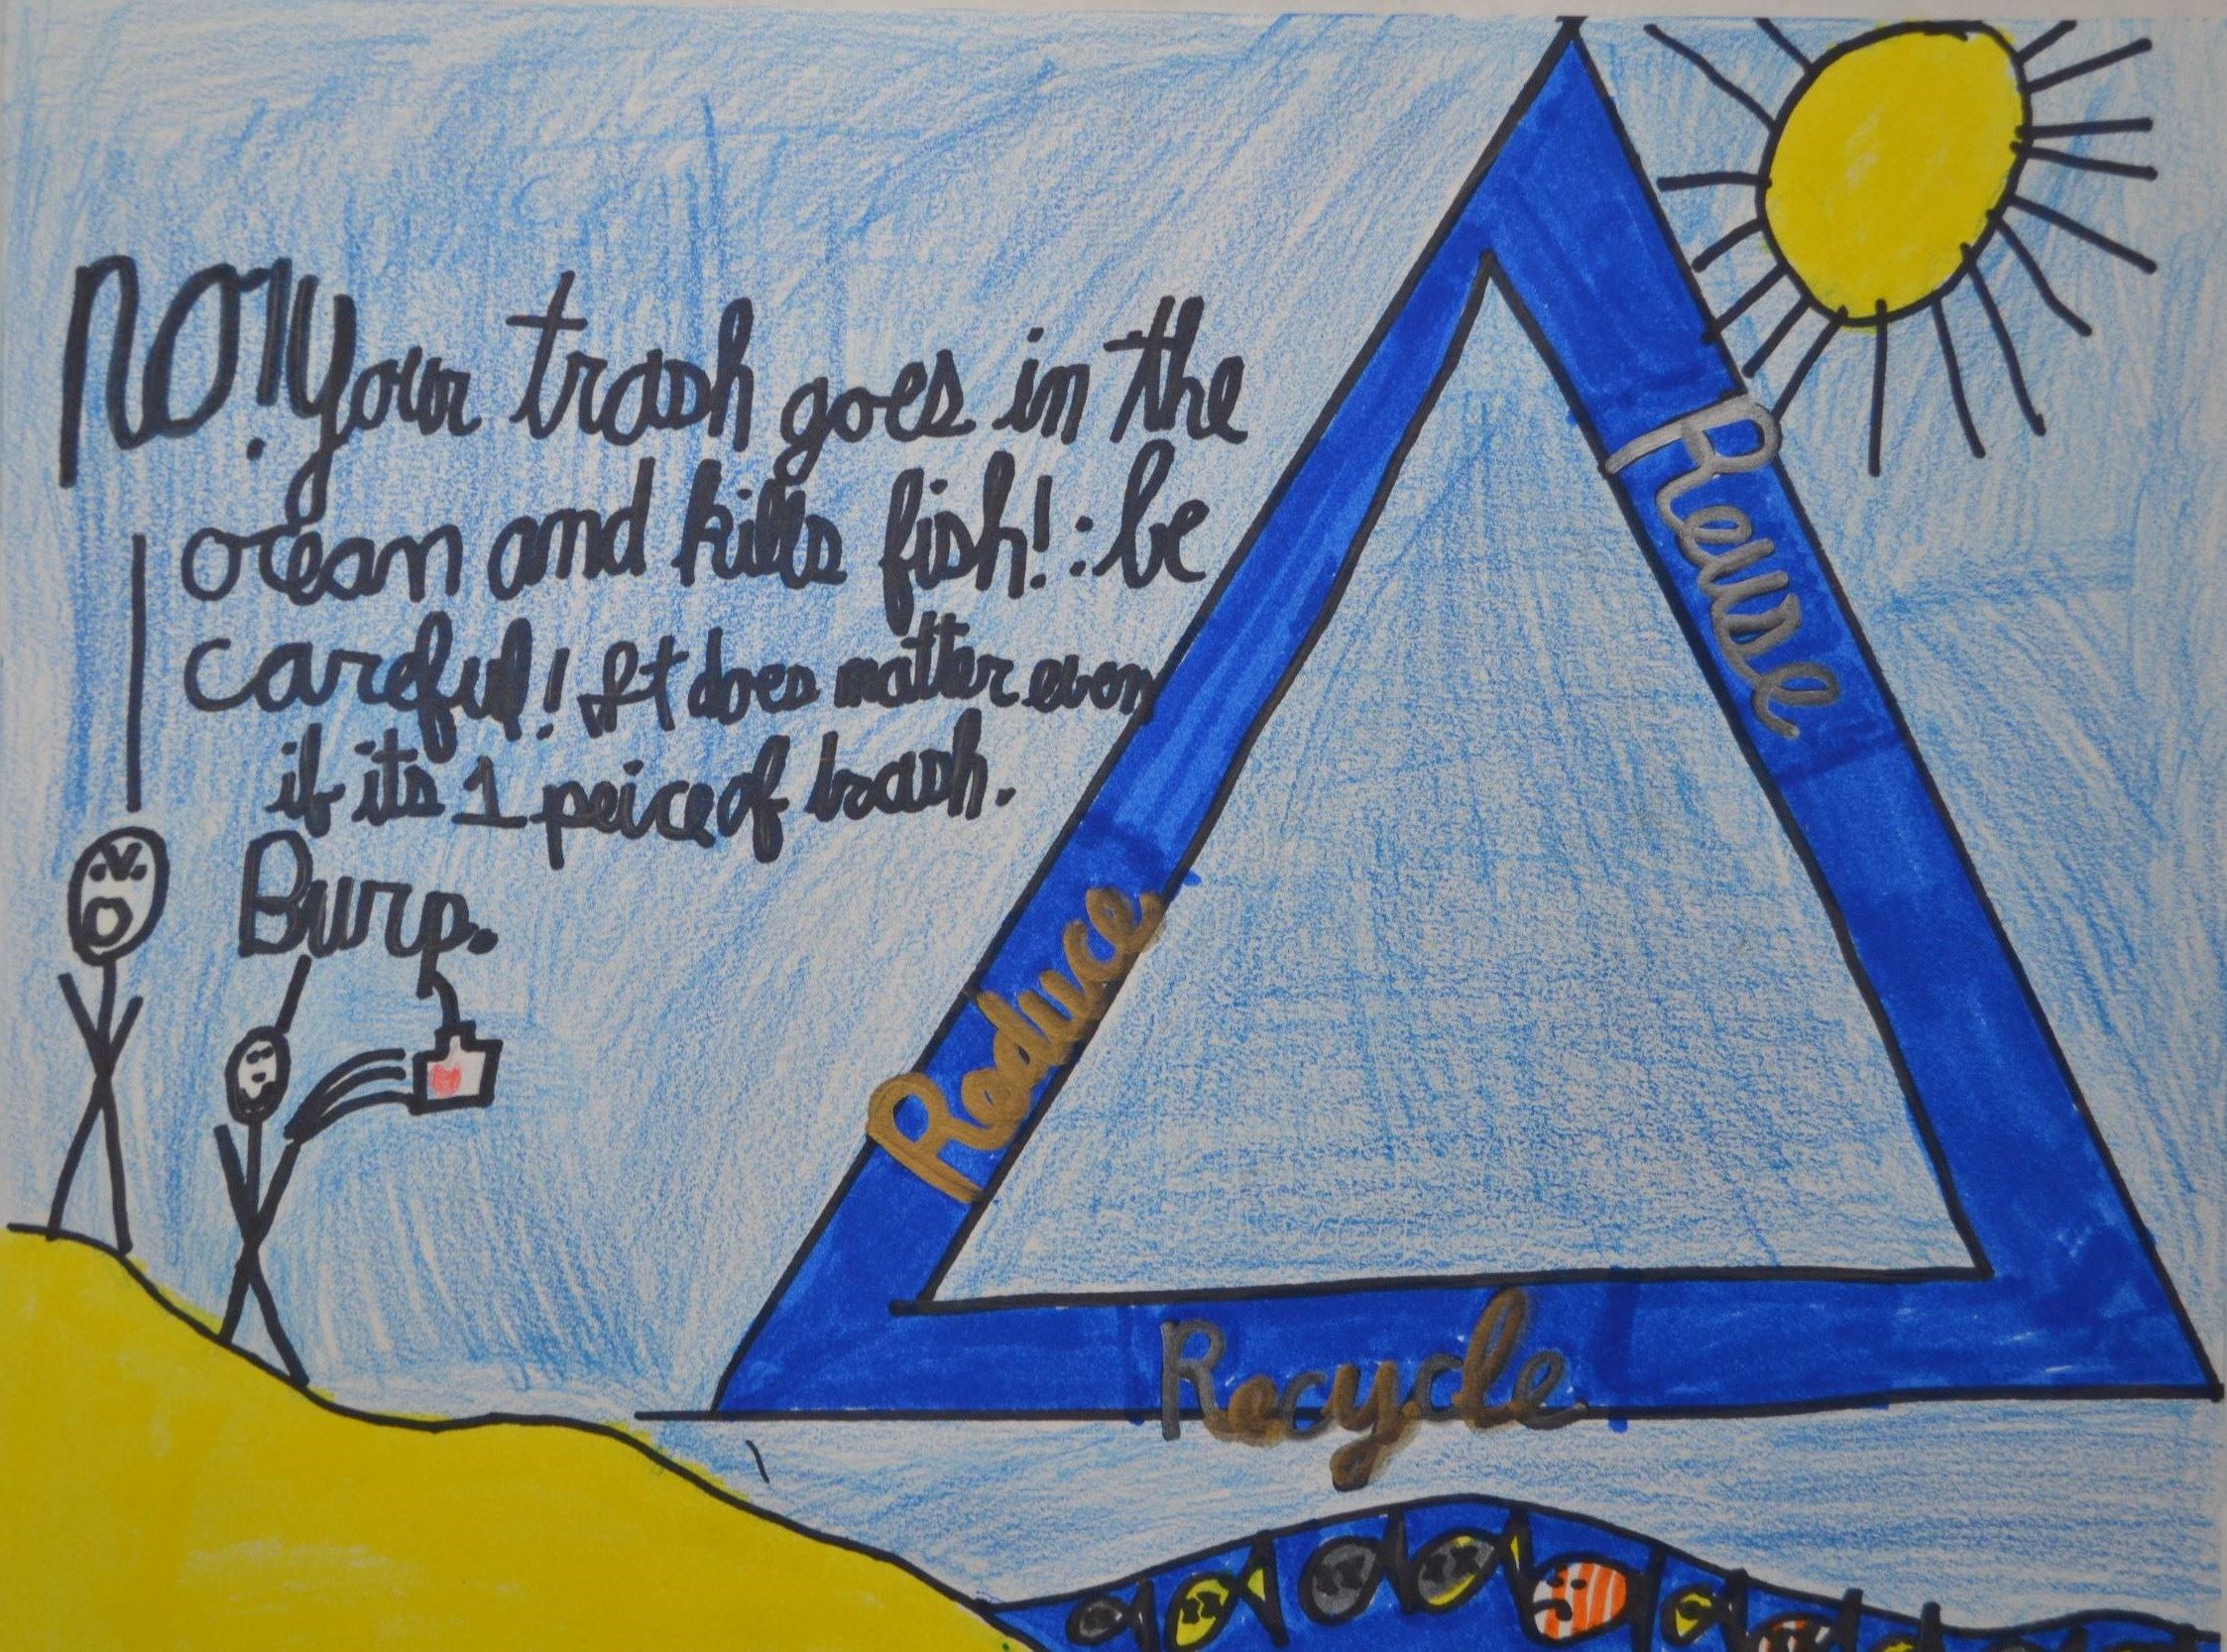 NO! Your trash goes in the
ocean and kills fish! : be
careful! It does matter even
if its 1 peice of trash.
Burp.
Reuse
Reduce
Recycle